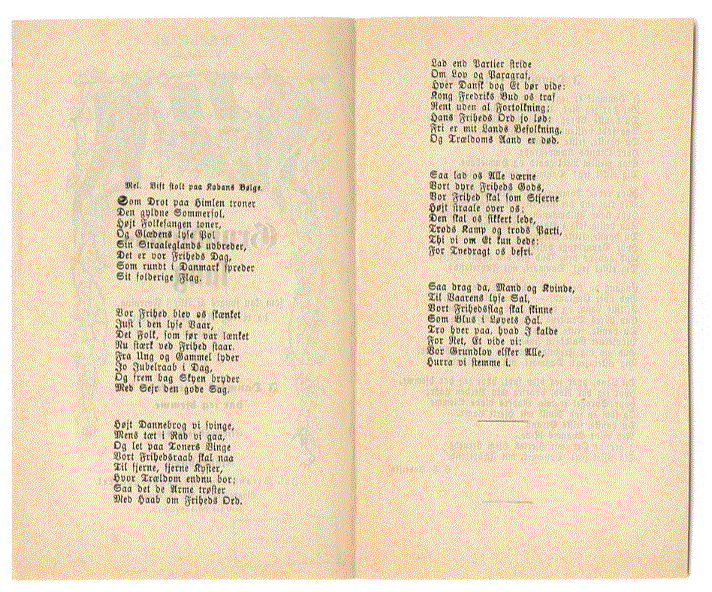 Mel. Vift stolt paa Kodans Bølge.
Som Drot paa Himlen troner
Den gyldne Sommersol,
Højt Folkesangen toner,
Og Glædens lyse Pol
Sin Straaleglands udbreder,
Det er vor Friheds Dag,
Som rundt i Danmark spreder
Sit folderige Flag.
Vor Frihed blev os skænket
Just i den lyse Vaar,
Det Folk, som før var lænket
Nu stærk ved Frihed staar.
Fra Ung og Gammel lyder
Jo Jubelraab i Dag,
Og frem bag Skyen bryder
Med Sejr den gode Sag.
Højt Dannebrog vi svinge,
Mens tæt i Rad vi gaa,
Og let paa Toners Vinge
Vort Frihedsraab skal naa
Til fjerne, fjerne Kyster,
Hvor Trældom endnu bor;
Saa det de Arme trøster
Med Haab om Friheds Ord.
Lad end Partier stride
Om Lov og Paragraf,
Hver Dansk dog Et bør vide:
Kong Fredriks Bud os traf
Rent uden al Fortolkning;
Hans Friheds Ord jo lød:
Fri er mit Lands Befolkning,
Og Trældoms Aand er død.
Saa lad os Alle værne
Vort dyre Friheds Gods,
Vor Frihed skal som Stjerne
Højt straale over os;
Den skal os sikkert lede,
Trods Kamp og trods Parti,
Thi vi om Et kun bede:
For Tvedragt os befri.
Saa drag da, Mand og Kvinde,
Til Vaarens lyse Sal,
Vort Frihedsflag skal skinne
Som Blus i Løvets Hal.
Tro hver paa, hvad I kalde
For Ret, Et vide vi:
Vor Grundlov elsker Alle,
Hurra vi stemme i.